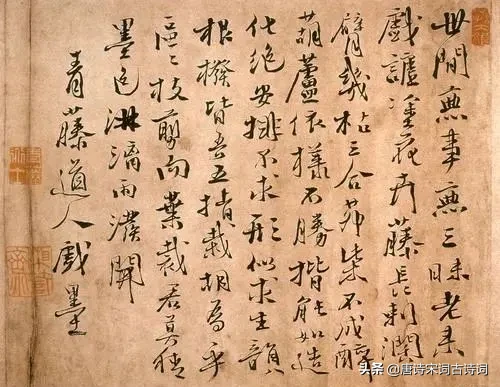 世間無事無三昧老來
戲謔塗花卉藤長刺闊
臂幾枯三合茅柴不成醉
葫蘆依樣不勝揩能如造
化絕安排不求形似求生韻
根撥皆吾五指栽胡為乎
區〻枝剪而葉裁君莫猜
墨色淋漓雨潑開
青藤道人戲墨
头条 @唐诗宋词古诗词